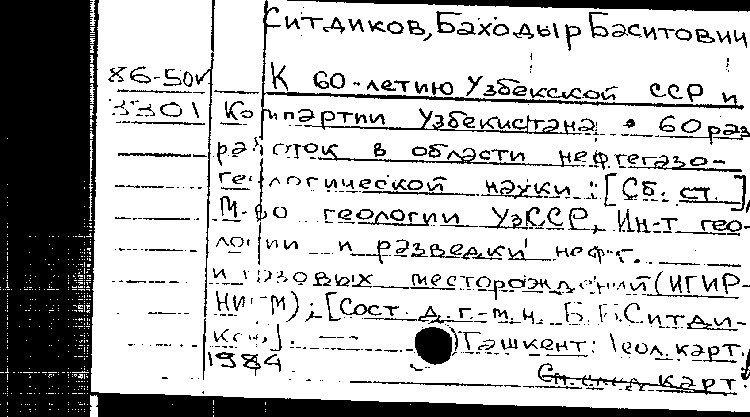 Ситдиков, Баходыр Баситович
86-50к К 60-летию Узбекской ССР и
3301 Компартии Узбекистана • 60 раз
работок в области нефтегазо-
геологической науки : [Сб. ст.],
М-во геологии УзССР, Ин-т гео-
логии и разведки нефт.
и газовых месторождений (ИГИР-
НИГМ); [Сост. д. г.-м. н. Б. Б. Ситди-
ков]. — Ташкент: Геол. карт.,
1984
См. след. карт.